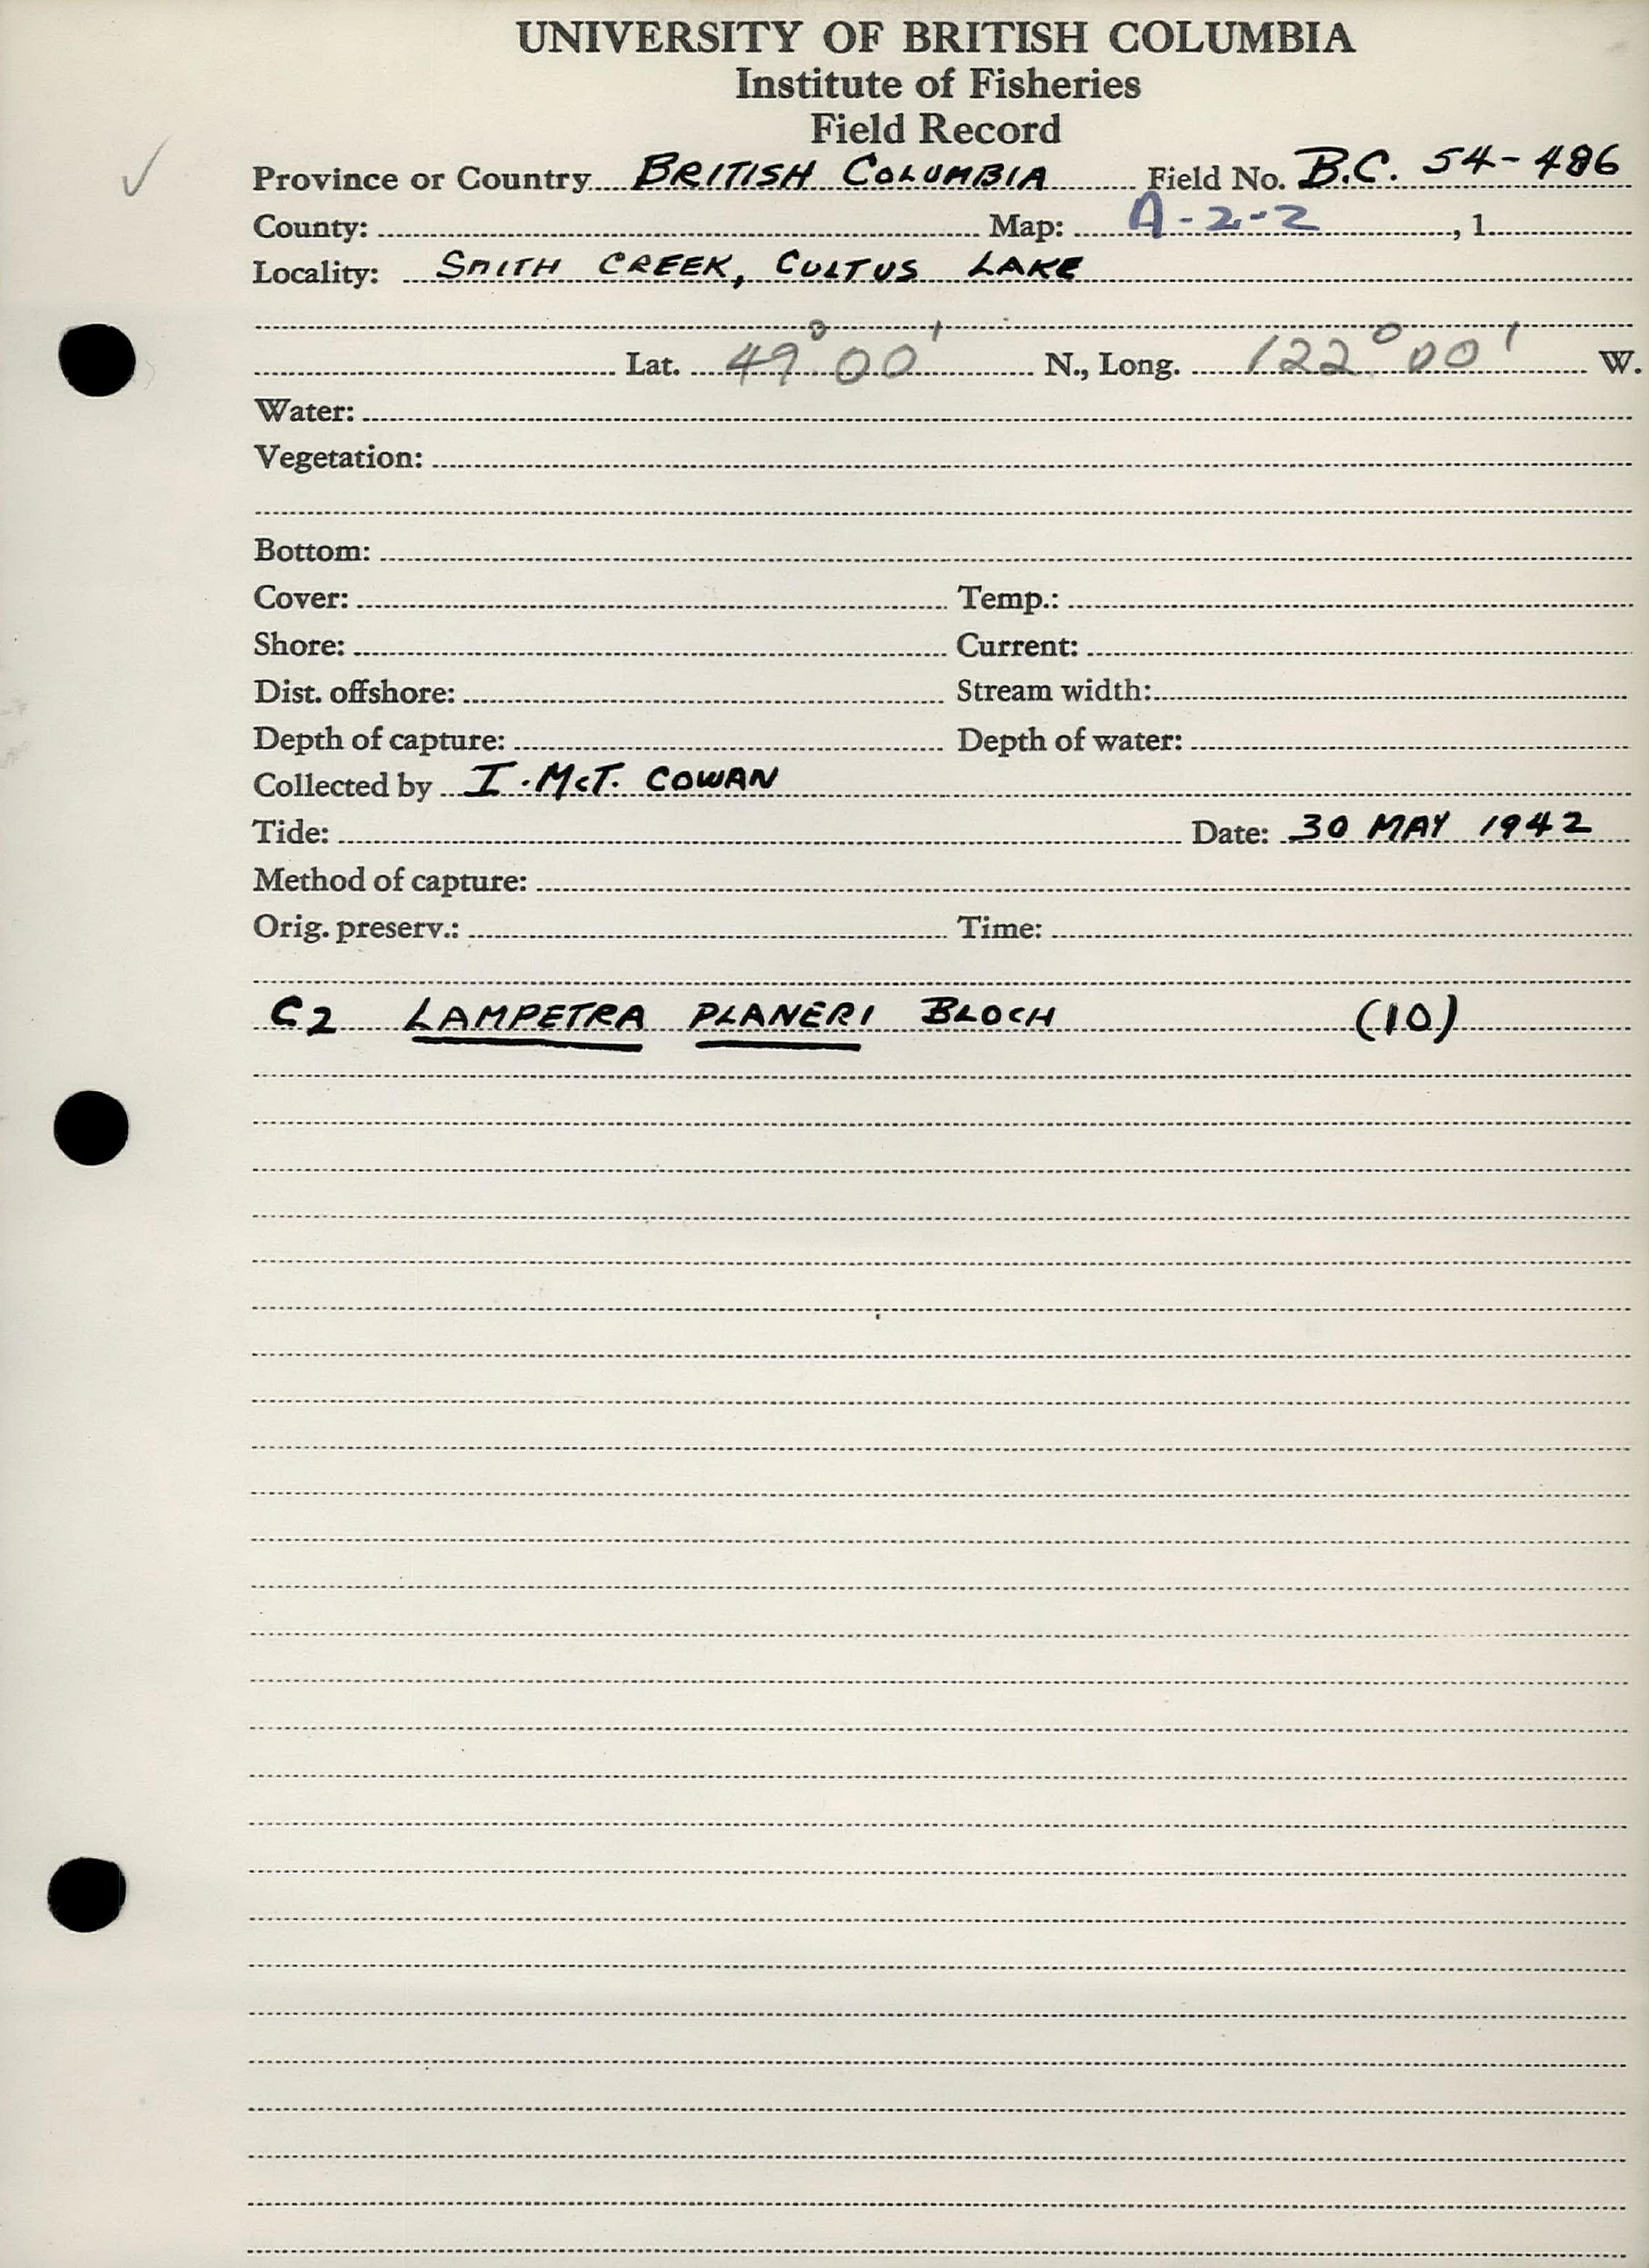 UNIVERSITY OF BRITISH COLUMBIA
Institute of Fisheries
Field Record
Province or Country BRITISH COLUMBIA Field No. B.C. 54-486
County: Map: A-2-2, 1
Locality: SMITH CREEK, CULTUS LAKE
Lat. 49°00' N., Long. 122°00' W.
Water:
Vegetation:
Bottom:
Cover: Temp.:
Shore: Current:
Dist. offshore: Stream width:
Depth of capture: Depth of water:
Collected by I. McT. COWAN
Tide: Date: 30 MAY 1942
Method of capture:
Orig. preserv.: Time:
C2 LAMPETRA PLANERI BLOCH (10)